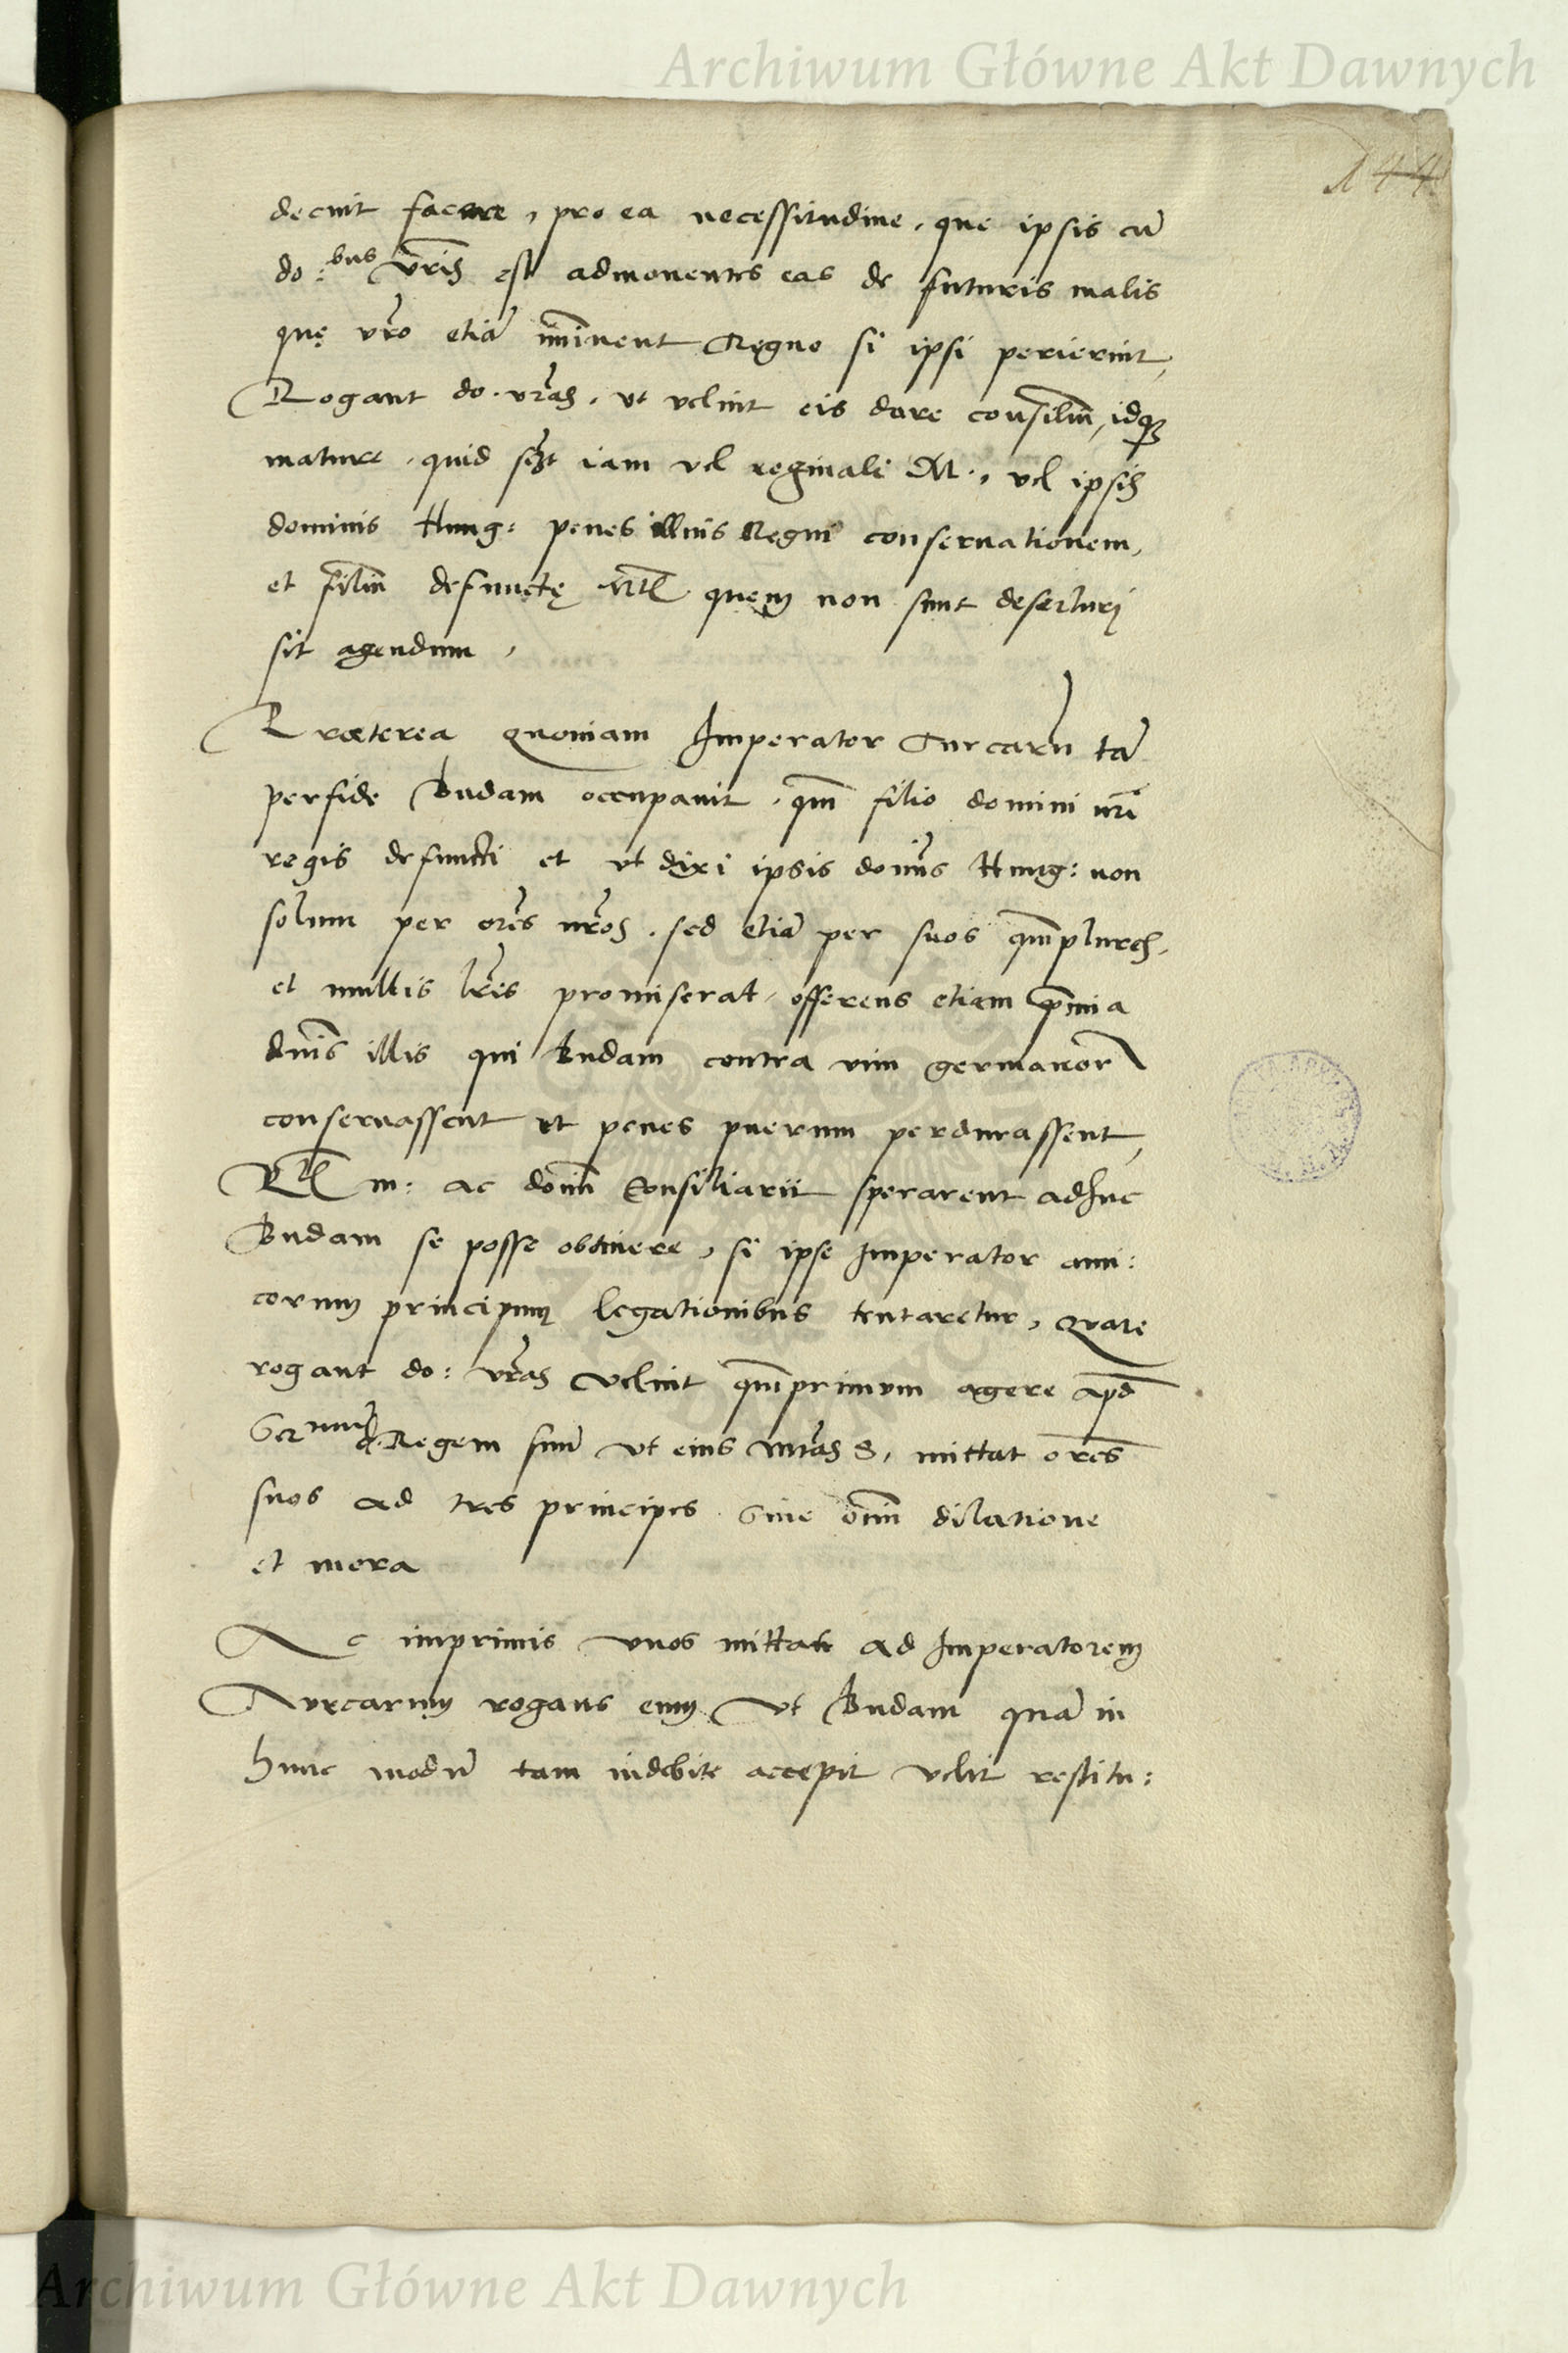 Archiwum Główne Akt Dawnych
144
decuit facere, pro ea necessitudine, que ipsis cū
do:bus vr̄is est admonentes eas de futuris malis
quę vr̄o etiā im̄inent Regno si ipsi perierint,
Rogant do. vr̄as, ut velint eis dare consiliū, idqꝫ
mature, quid iam vel reginali M., vel ipsis
dominis Hung: penes illius Regni conseruationem,
et filiū defunctę Mt̄ quem non sunt deserturi
sit agendum,
Præterea quoniam Imperator Turcarū tā
perfide Budam occupauit, qm̄ filio domini nr̄i
regis defuncti et vt dixi ipsis domīs Hung: non
solum per or̄es nr̄os, sed etiā per suos qm̄plures,
et multis lr̄is promiserat, offerens etiam p̄mia
dn̄is illis qui Budam contra vim germanor
conseruassent et penes puerum perdurassent,
Rt̄ m: ac domī Consiliarii sperarent adhuc
Budam se posse obtinere, si ipse Imperator ami:
corum principum legationibus tentaretur, Quare
rogant do: vr̄as velint qm̄primum agere apd̄
Ser^mum d. Regem suū vt eius mtās S, mittat or̄es
suos ad tres principes sine om̄i dilatione
et mora
Ac imprimis vnos mittat ad Imperatorem
Turcarum rogans eum vt Budam quā in
hunc modū tam indebite accepit velit restitu:
Archiwum Główne Akt Dawnych